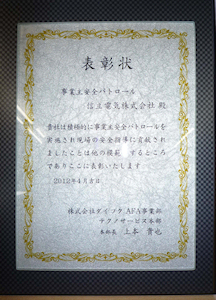 表彰状
事業主安全パトロール
信立電気株式会社 殿
貴社は積極的に事業主安全パトロールを
実施され現場の安全指導に貢献され
ましたことは他の模範 するところ
でありここに表彰いたします
2012年4月吉日
株式会社ダイフク AFA事業部
テクノサービス本部
本部長 上本